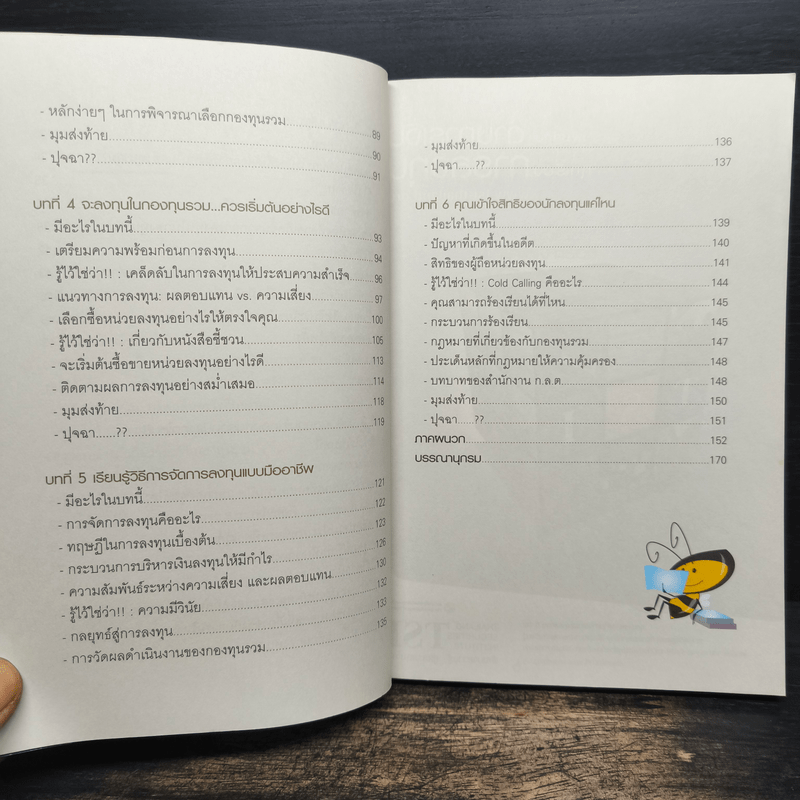 - หลักง่ายๆ ในการพิจารณาเลือกกองทุนรวม 89
- มุมส่งท้าย 90
- ปุจฉา?? 91
บทที่ 4 จะลงทุนในกองทุนรวม...ควรเริ่มต้นอย่างไรดี
- มีอะไรในบทนี้ 93
- เตรียมความพร้อมก่อนการลงทุน 94
- รู้ไว้ใช่ว่า!! : เคล็ดลับในการลงทุนให้ประสบความสำเร็จ 96
- แนวทางการลงทุน: ผลตอบแทน vs. ความเสี่ยง 97
- เลือกซื้อหน่วยลงทุนอย่างไรให้ตรงใจคุณ 100
- รู้ไว้ใช่ว่า!! : เกี่ยวกับหนังสือชี้ชวน 105
- จะเริ่มต้นซื้อขายหน่วยลงทุนอย่างไรดี 113
- ติดตามผลการลงทุนอย่างสม่ำเสมอ 114
- มุมส่งท้าย 118
- ปุจฉา......?? 119
บทที่ 5 เรียนรู้วิธีการจัดการลงทุนแบบมืออาชีพ
- มีอะไรในบทนี้ 121
- การจัดการลงทุนคืออะไร 122
- ทฤษฎีในการลงทุนเบื้องต้น 123
- กระบวนการบริหารเงินลงทุนให้มีกำไร 126
- ความสัมพันธ์ระหว่างความเสี่ยง และผลตอบแทน 130
- รู้ไว้ใช่ว่า!! : ความมีวินัย 132
- กลยุทธ์สู่การลงทุน 133
- การวัดผลดำเนินงานของกองทุนรวม 135
- มุมส่งท้าย 136
- ปุจฉา......?? 137
บทที่ 6 คุณเข้าใจสิทธิของนักลงทุนแค่ไหน
- มีอะไรในบทนี้ 139
- ปัญหาที่เกิดขึ้นในอดีต 140
- สิทธิของผู้ถือหน่วยลงทุน 141
- รู้ไว้ใช่ว่า!! : Cold Calling คืออะไร 144
- คุณสามารถร้องเรียนได้ที่ไหน 145
- กระบวนการร้องเรียน 145
- กฎหมายที่เกี่ยวข้องกับกองทุนรวม 147
- ประเด็นหลักที่กฎหมายให้ความคุ้มครอง 148
- บทบาทของสำนักงาน ก.ล.ต. 148
- มุมส่งท้าย 150
- ปุจฉา......?? 151
ภาคผนวก 152
บรรณานุกรม 170